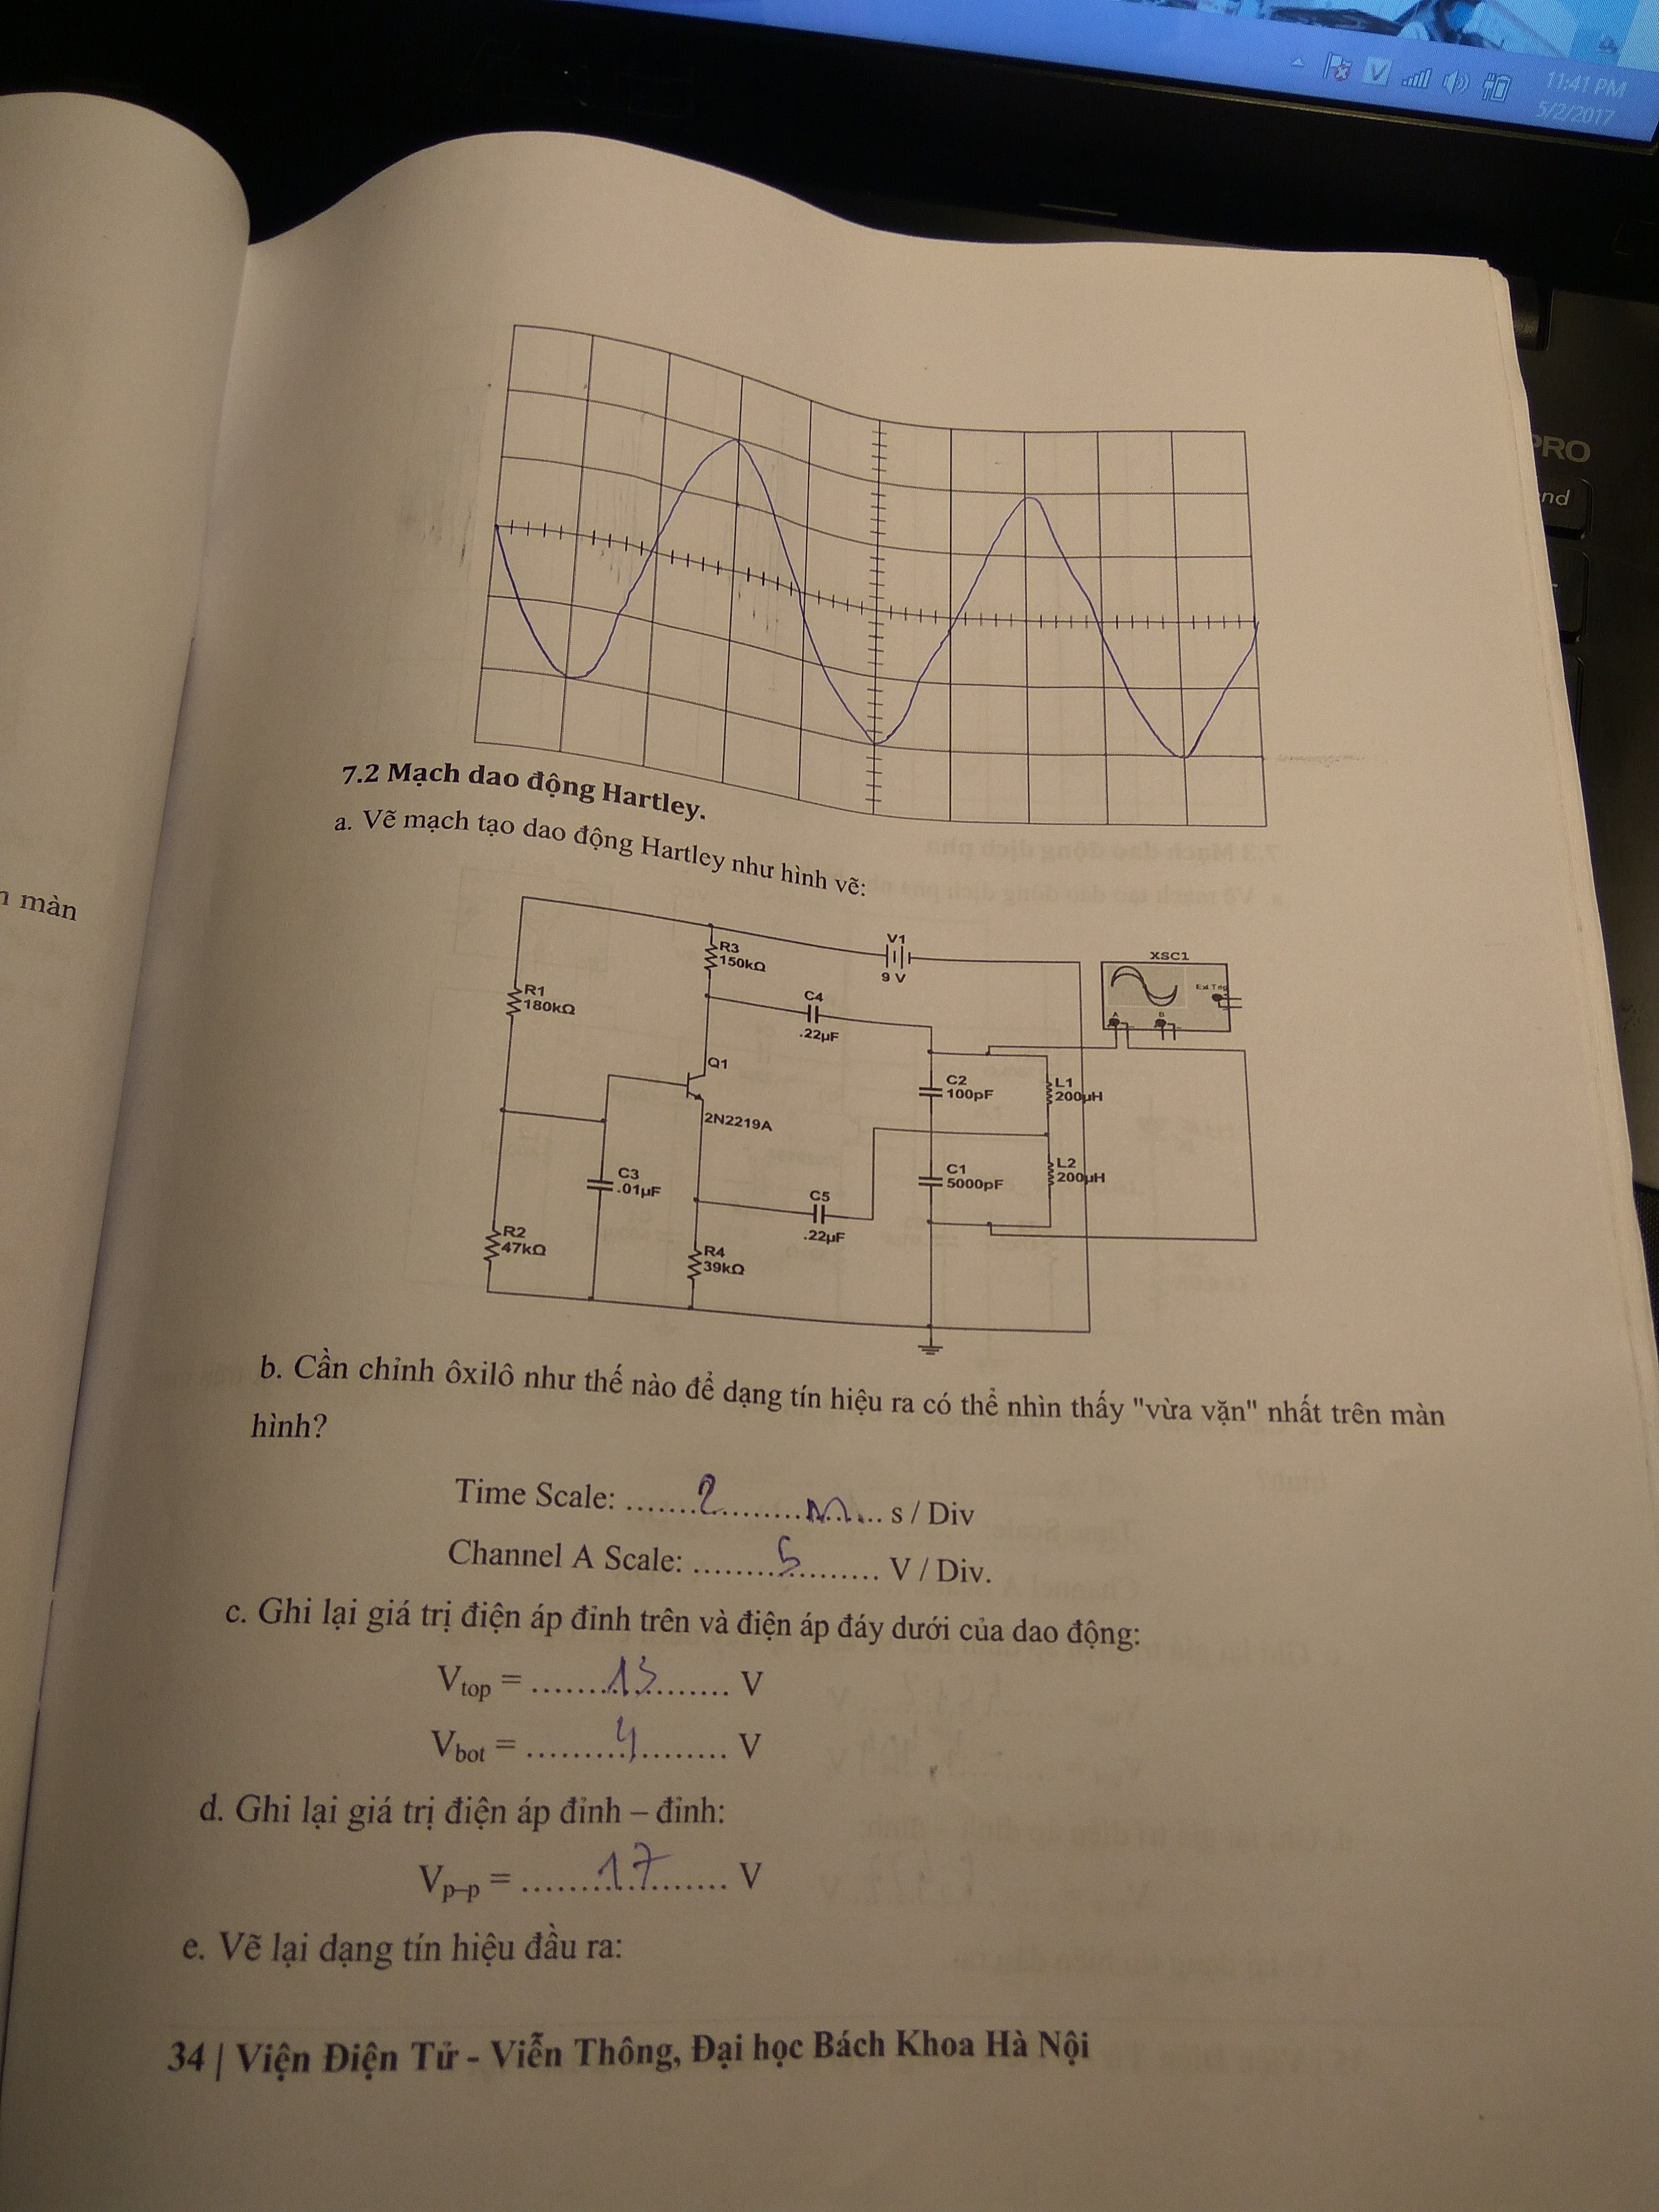 11:41 PM
5/2/2017
PRO
nd
màn
7.2 Mạch dao động Hartley.
a. Vẽ mạch tạo dao động Hartley như hình vẽ:
V1
9 V
R3
150kΩ
XSC1
Ext Trig
A
B
R1
180kΩ
C4
.22µF
Q1
2N2219A
C2
100pF
L1
200µH
C3
.01µF
C1
5000pF
L2
200µH
C5
.22µF
R2
47kΩ
R4
39kΩ
b. Cần chỉnh ôxilô như thế nào để dạng tín hiệu ra có thể nhìn thấy "vừa vặn" nhất trên màn
hình?
Time Scale: .......2...........m.... s / Div
Channel A Scale: .........5.......... V / Div.
c. Ghi lại giá trị điện áp đỉnh trên và điện áp đáy dưới của dao động:
Vtop = ........13.......... V
Vbot = .........4.......... V
d. Ghi lại giá trị điện áp đỉnh – đỉnh:
Vp–p = ........17.......... V
e. Vẽ lại dạng tín hiệu đầu ra:
34 | Viện Điện Tử - Viễn Thông, Đại học Bách Khoa Hà Nội